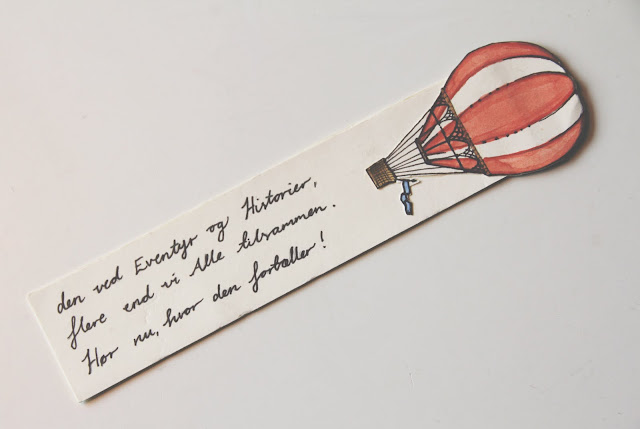 den ved Eventyr og Historier,
flere end vi Alle tilsammen.
Hør nu, hvor den fortæller!